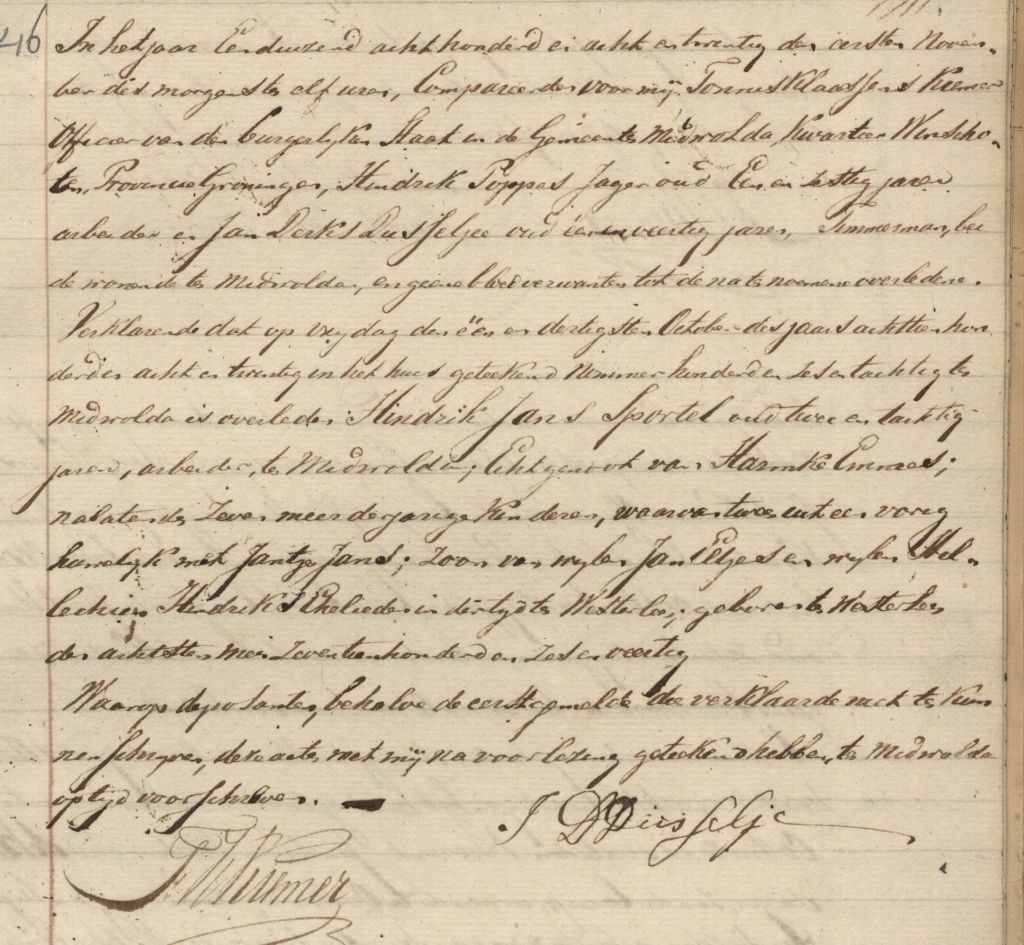 46
In het jaar Eenduizend achthonderd en acht en twintig den eersten Novem„
ber des morgens te elf uren, Compareerden voor mij Tonnis Klaassens Kremer
Officier van den burgerlijken Staat in de Gemeente Midwolda, Kwartier Winscho„
ten, Provincie Groningen, Hindrik Poppes Jager oud Een en zestig jaren
arbeider en Jan Derks Dusseljee oud één en veertig jaren, Timmerman, bei
de wonende te Midwolda, en geene bloedverwanten tot de na te noemene overledene.
Verklarende dat op vrydag den één en dertigsten October des jaars achttien hon
derd en acht en twintig in het huis geteekend Nummer honderd en zes en tachtig te
Midwolda is overleden Hindrik Jans Sportel oud twee en tachtig
jaren, arbeider, te Midwolda; Echtgenoot van Harmke Emmes;
nalatende zeven meerderjarige kinderen, waarvan twee uit een vorig
huwelijk met Jantje Jans; zoon van wylen Jan Eltjes en wylen Hil„
lechien Hindriks Echelieden in der tyd te Westerlee; geboren te Westerlee
den achtsten mei zeventienhonderd en zes en veertig
Waarop deposanten, behalve de eerstgemelde die verklaarde niet te kun
nen schryven, deze acte met mij na voorlezing geteekend hebben, te Midwolda
op tyd voorschreven.
J D Dusselje
T K Kremer